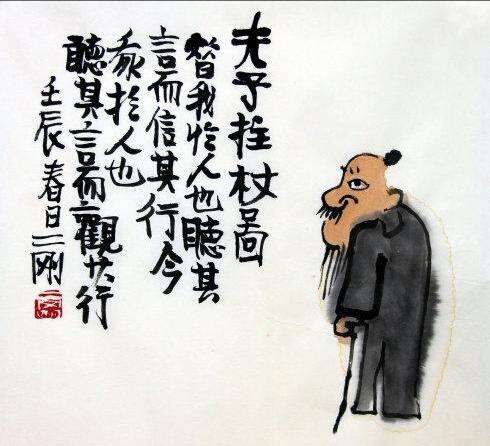 夫子拄杖啚
昔我於人也聽其
言而信其行今
我於人也
聽其言而觀其行
壬辰春日二剛